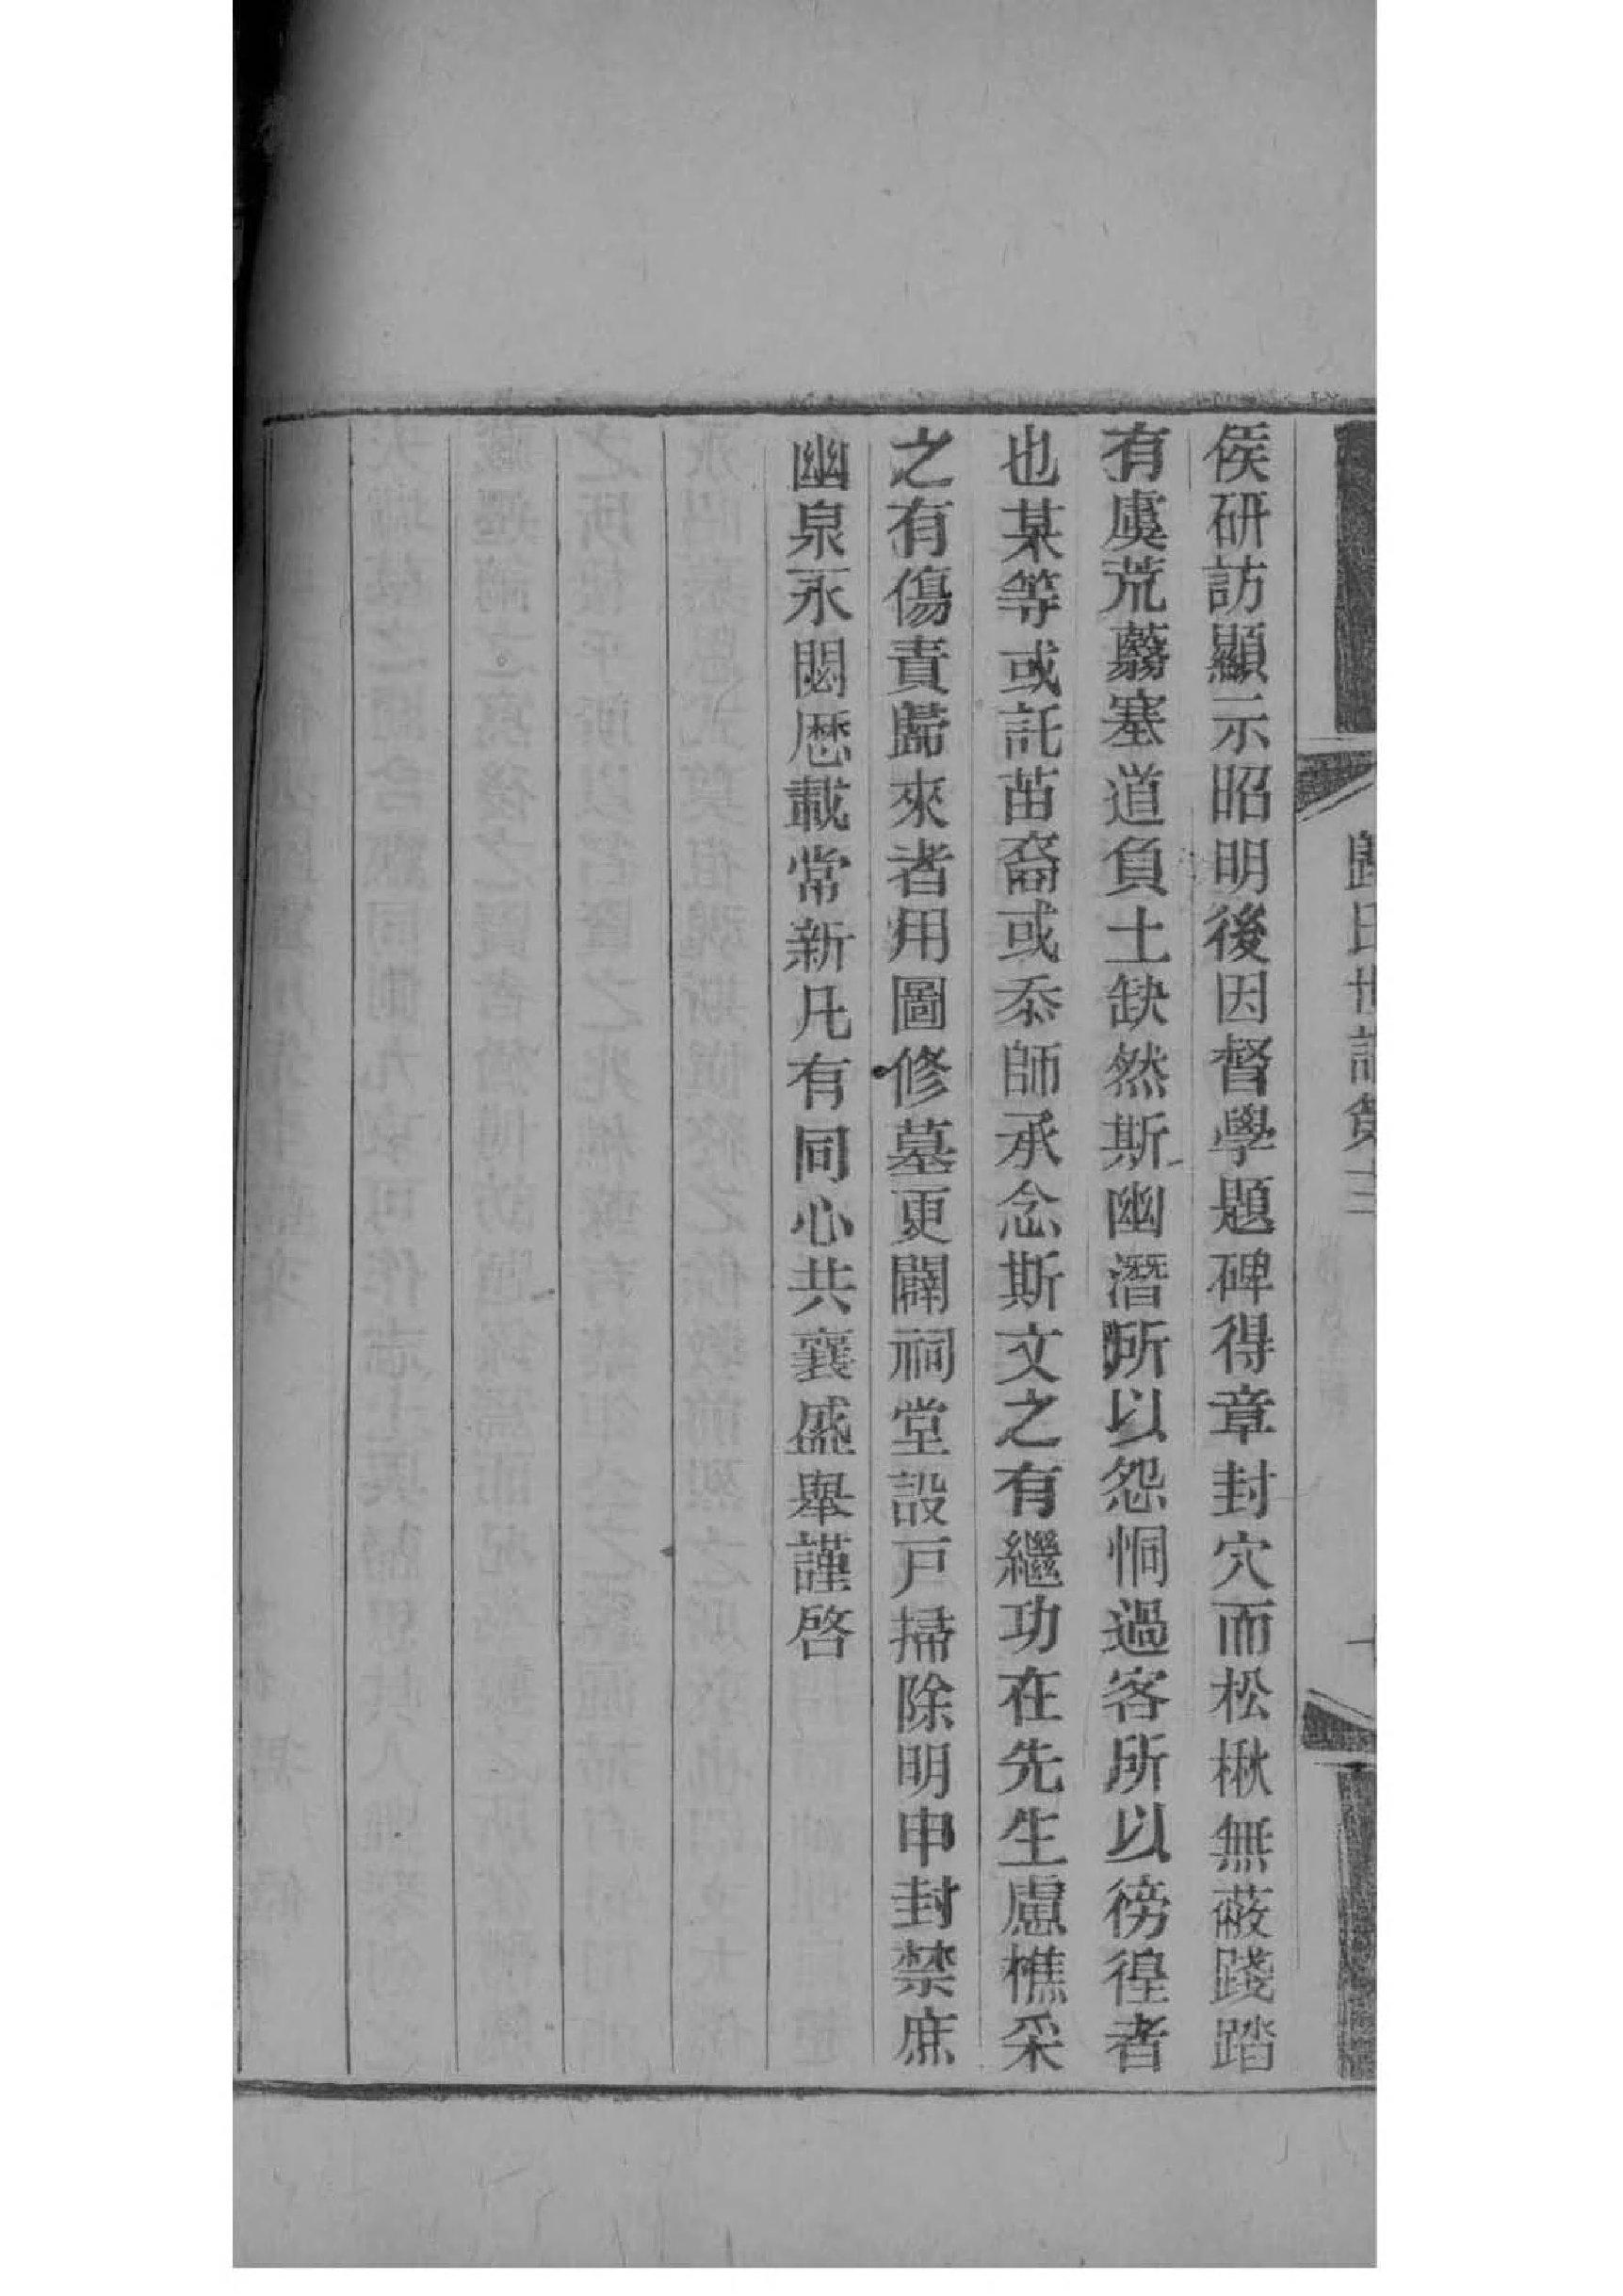 歸氏世譜第三
侯研訪顯示昭明後因督學題碑得章封穴而松楸無蔽踐踏
有虞荒蘙塞道負土缺然斯幽潛所以怨恫過客所以徬徨者
也某等或託苗裔或忝師承念斯文之有繼功在先生慮樵采
之有傷責歸來者用圖修墓更闢祠堂設戸掃除明申封禁庶
幽泉永閟歷載常新凡有同心共襄盛舉謹啓